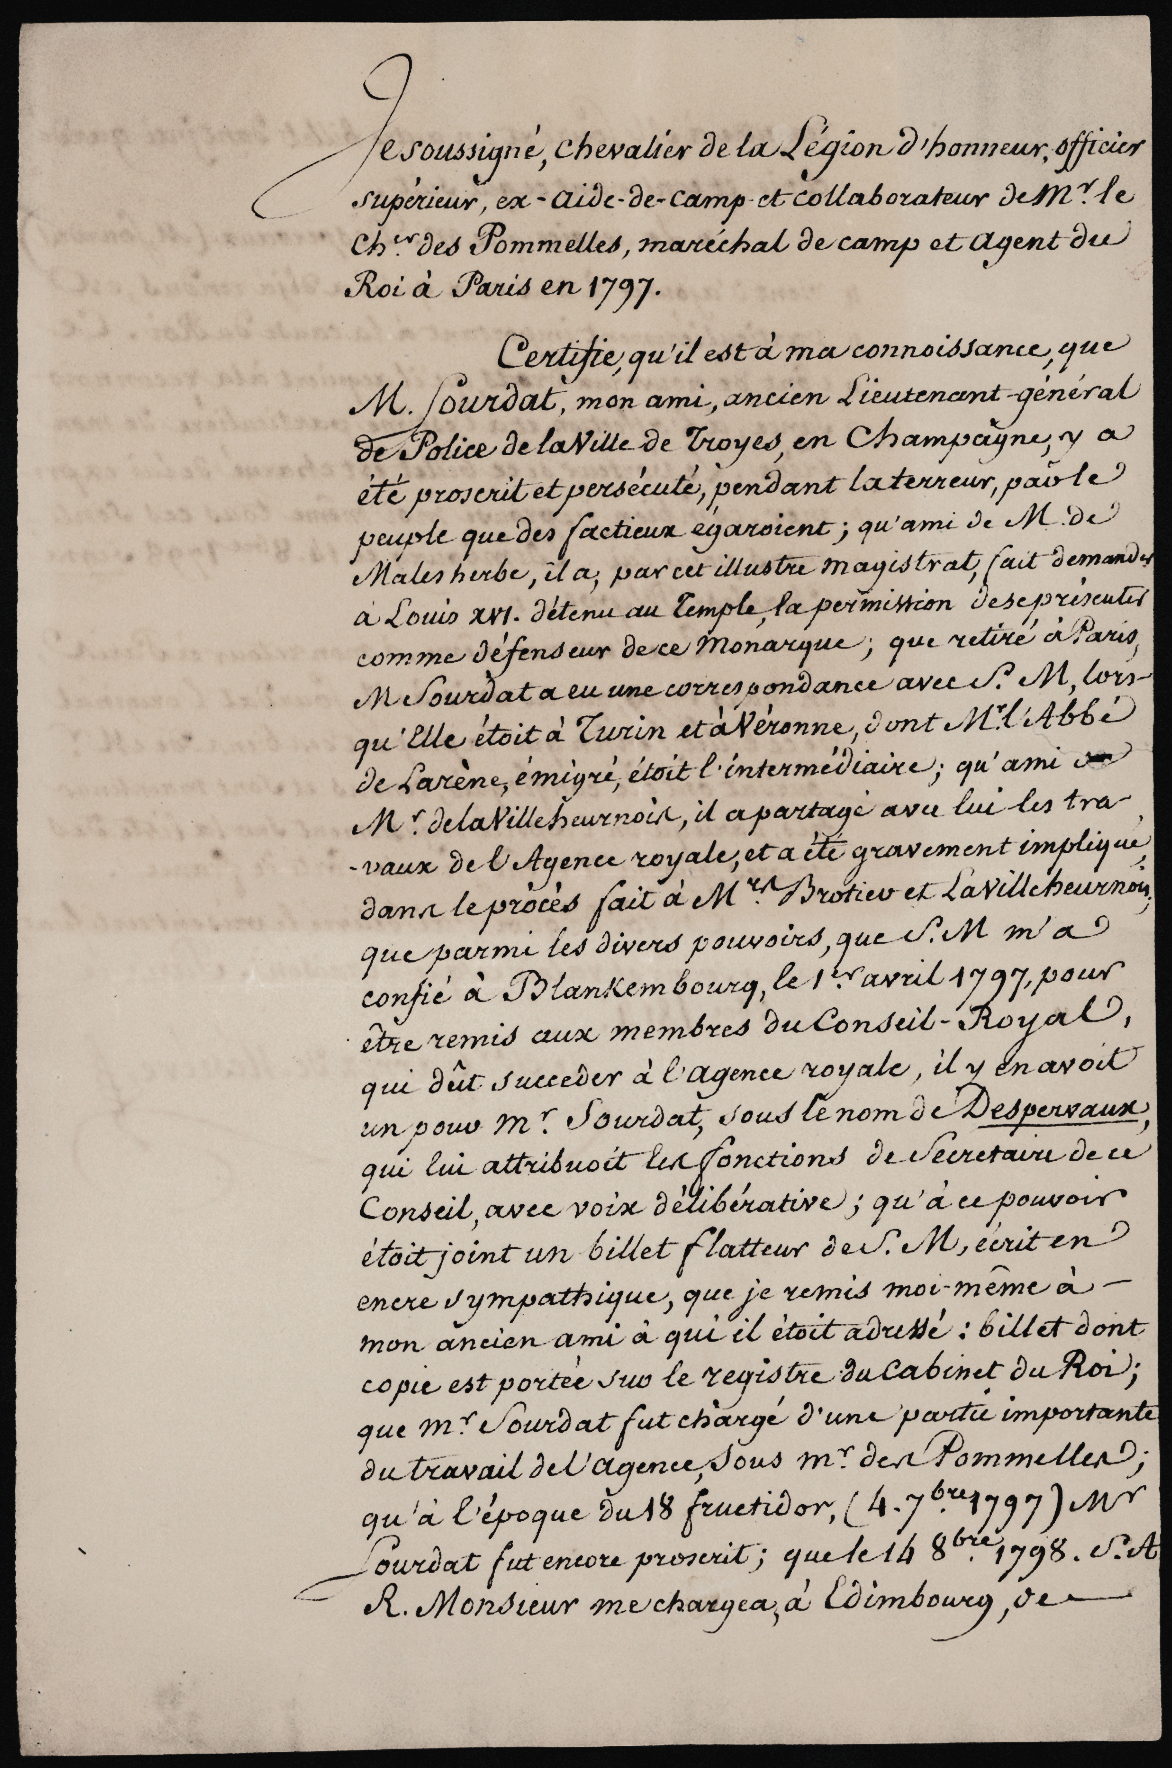 Je soussigné, chevalier de la Légion d'honneur, officier
supérieur, ex-aide-de-camp et collaborateur de Mr. le
Cher. des Pommelles, maréchal de camp et agent du
Roi à Paris en 1797.
Certifie, qu'il est à ma connoissance, que
M. Sourdat, mon ami, ancien Lieutenant-général
de Police de la Ville de Troyes, en Champagne, y a
été proscrit et persécuté, pendant la terreur, par le
peuple que des factieux égaroient; qu'ami de M. de
Malesherbe, il a, par cet illustre magistrat, fait demander
à Louis XVI. détenu au Temple, la permission de se présenter
comme défenseur de ce Monarque; que retiré à Paris,
M Sourdat a eu une correspondance avec S. M, lors-
qu'Elle étoit à Turin et à Véronne, dont Mr. l'Abbé
de Larène, émigré, étoit l'intermédiaire; qu'ami de
Mr. de la Villeheurnois, il a partagé avec lui les tra-
-vaux de l'Agence royale, et a été gravement impliqué,
dans le procès fait à Mrs. Brotier et Lavilleheurnois;
que parmi les divers pouvoirs, que S. M m'a
confié à Blankembourg, le 1er. avril 1797, pour
être remis aux membres du Conseil-Royal,
qui dût succeder à l'agence royale, il y en avoit
un pour mr. Sourdat, sous le nom de Despervaux,
qui lui attribuoit les fonctions de Secretaire de ce
Conseil, avec voix délibérative; qu'à ce pouvoir
étoit joint un billet flatteur de S. M, écrit en
encre sympathique, que je remis moi-même à —
mon ancien ami à qui il étoit adressé: billet dont
copie est portée sur le registre du Cabinet du Roi;
que mr. Sourdat fut chargé d'une partie importante
du travail de l'agence, sous mr. des Pommelles;
qu'à l'époque du 18 fructidor, (4. 7bre. 1797) Mr
Sourdat fut encore proscrit; que le 14 8bre. 1798. S. A
R. Monsieur me chargea, à Edimbourg, de —